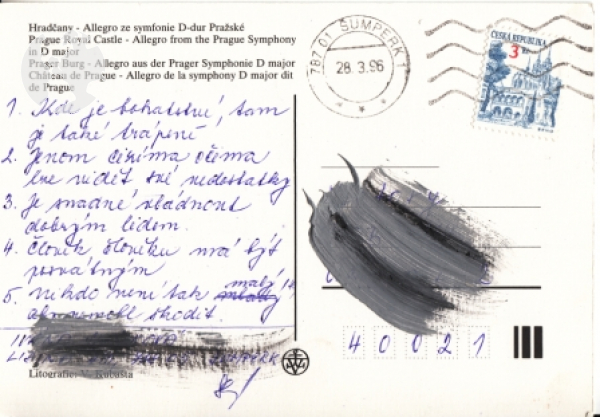 Hradčany - Allegro ze symfonie D-dur Pražské
Prague Royal Castle - Allegro from the Prague Symphony
in D major
Prager Burg - Allegro aus der Prager Symphonie D major
Château de Prague - Allegro de la symphony D major dit
de Prague
1. Kde je bohatství, tam
je také trápení
2. Jenom cizíma očima
lze vidět své nedostatky
3. Je snadné vládnout
dobrým lidem.
4. Člověk člověku má být
posvátným
5. Nikdo není tak malý,
aby nemohl škodit.
Litografie: V. Kubašta
787 01 ŠUMPERK 1
28.3.96
ČESKÁ REPUBLIKA
3 Kč
4 0 0 2 1